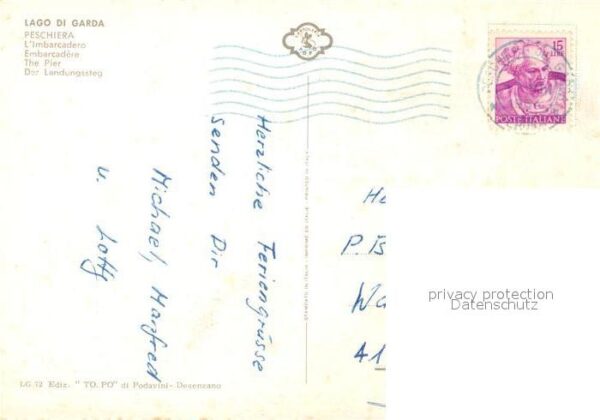 LAGO DI GARDA
PESCHIERA
L'Imbarcadero
Embarcadère
The Pier
Der Landungssteg
15
POSTE ITALIANE
Herzliche Feriengrüsse
senden Dir
Michael, Manfred
u. Lotty
He
P.
Wa
41
privacy protection
Datenschutz
STAMPATO IN ITALIA - IMPRIMÉ EN ITALIE - PRINTED IN ITALY
LG 72 Ediz. "TO. PO" di Podavini - Desenzano